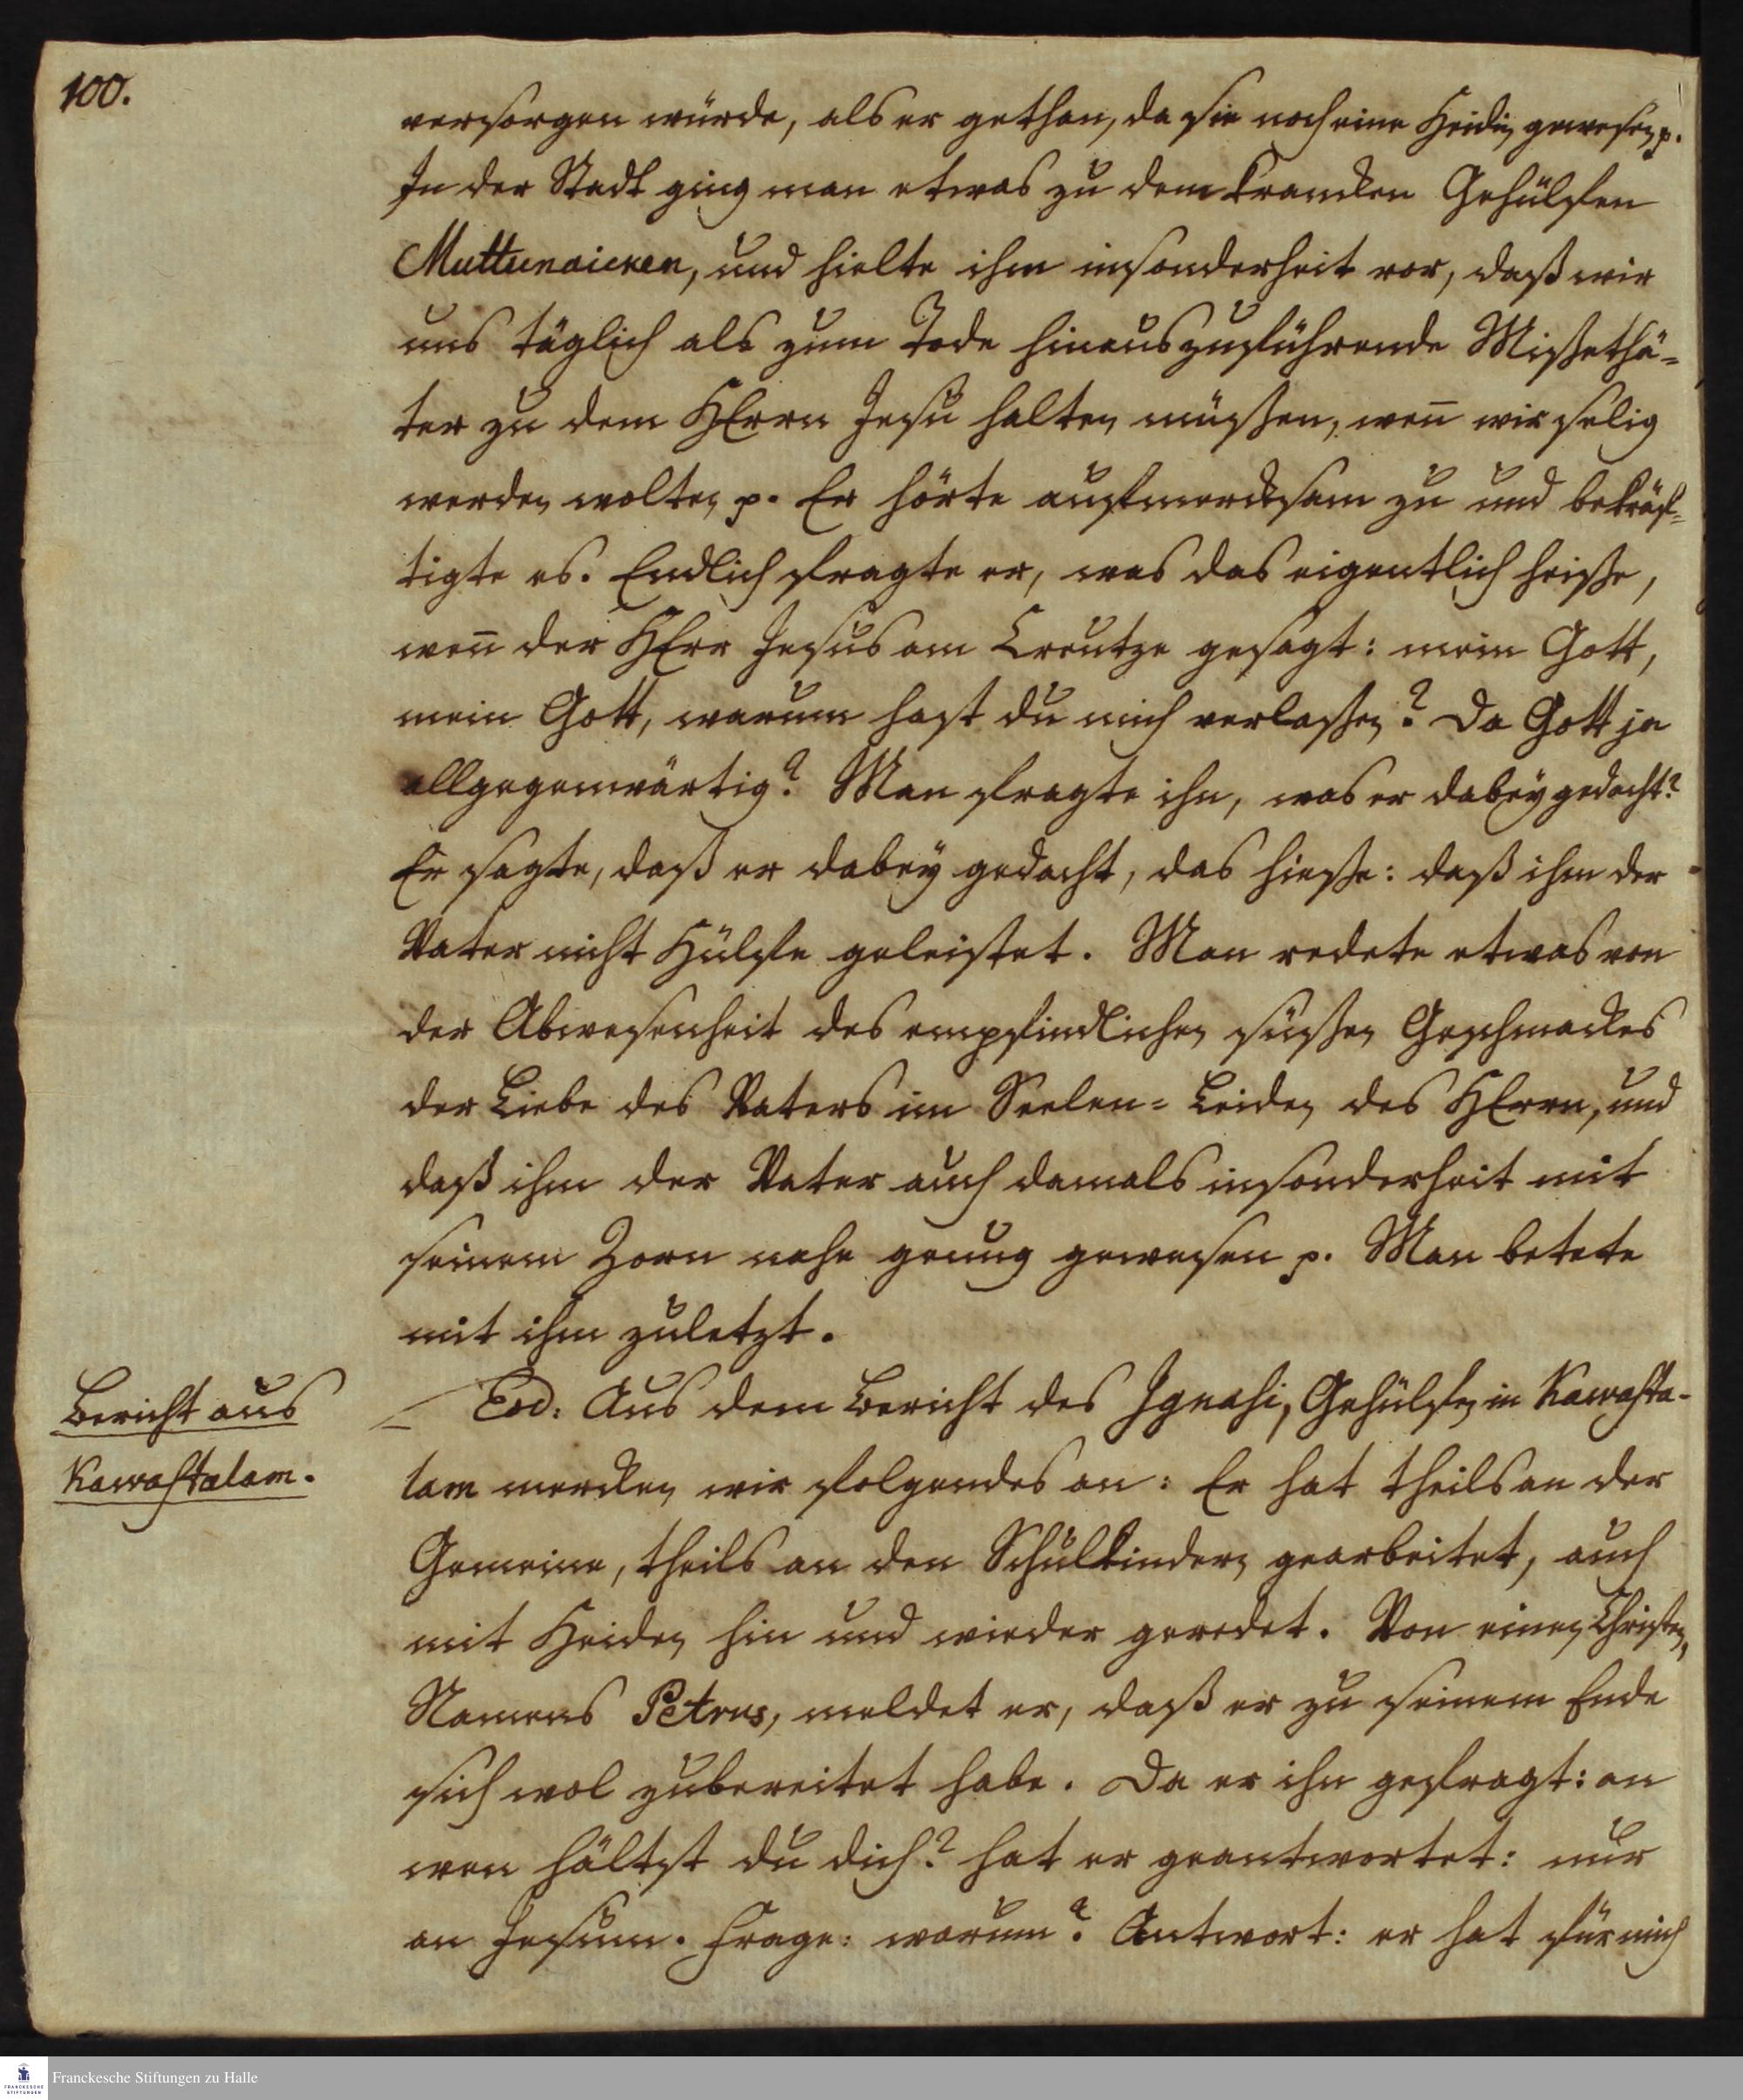 100.
versorgen würde, als er gethan, da sie noch eine Heidin gewesen p.
In der Stadt ging man etwas zu dem krancken Gehülfen
Muttunaicken, und hielte ihm insonderheit vor, daß wir
uns täglich als zum Tode hinauszuführende Mißethä-
ter zu dem HErrn Jesu halten müßen, wen̅ wir selig
werden wolten p. Er hörte aufmercksam zu und bekräf-
tigte es. Endlich fragte er, was das eigentlich heiße,
wen̅ der HErr Jesus am Creutze gesagt: mein Gott,
mein Gott, warum hast du mich verlaßen? Da Gott ja
allgegenwärtig? Man fragte ihn, was er dabey gedacht?
Er sagte, daß er dabey gedacht, das hieße: daß ihm der
Vater nicht Hülfe geleistet. Man redete etwas von
der Abwesenheit des empfindlichen süßen Geschmackes
der Liebe des Vaters im Seelen-Leiden des HErrn, und
daß ihm der Vater auch damals insonderheit mit
seinem Zorn nahe genug gewesen p. Man betete
mit ihm zuletzt.
Bericht aus
Kawastalam.
Eod: Aus dem Bericht des Ignasi, Gehülfen in Kawasta-
lam mercken wir folgendes an: Er hat theils an der
Gemeine, theils an den Schulkindern gearbeitet, auch
mit Heiden hin und wieder geredet. Von einem Christen,
Namens Petrus, meldet er, daß er zu seinem Ende
sich wol zubereitet habe. Da er ihn gefragt: an
wen hältst du dich? hat er geantwortet: nur
an Jesum. Frage: warum? Antwort: er hat für mich
Franckesche Stiftungen zu Halle
FRANCKESCHE
STIFTUNGEN